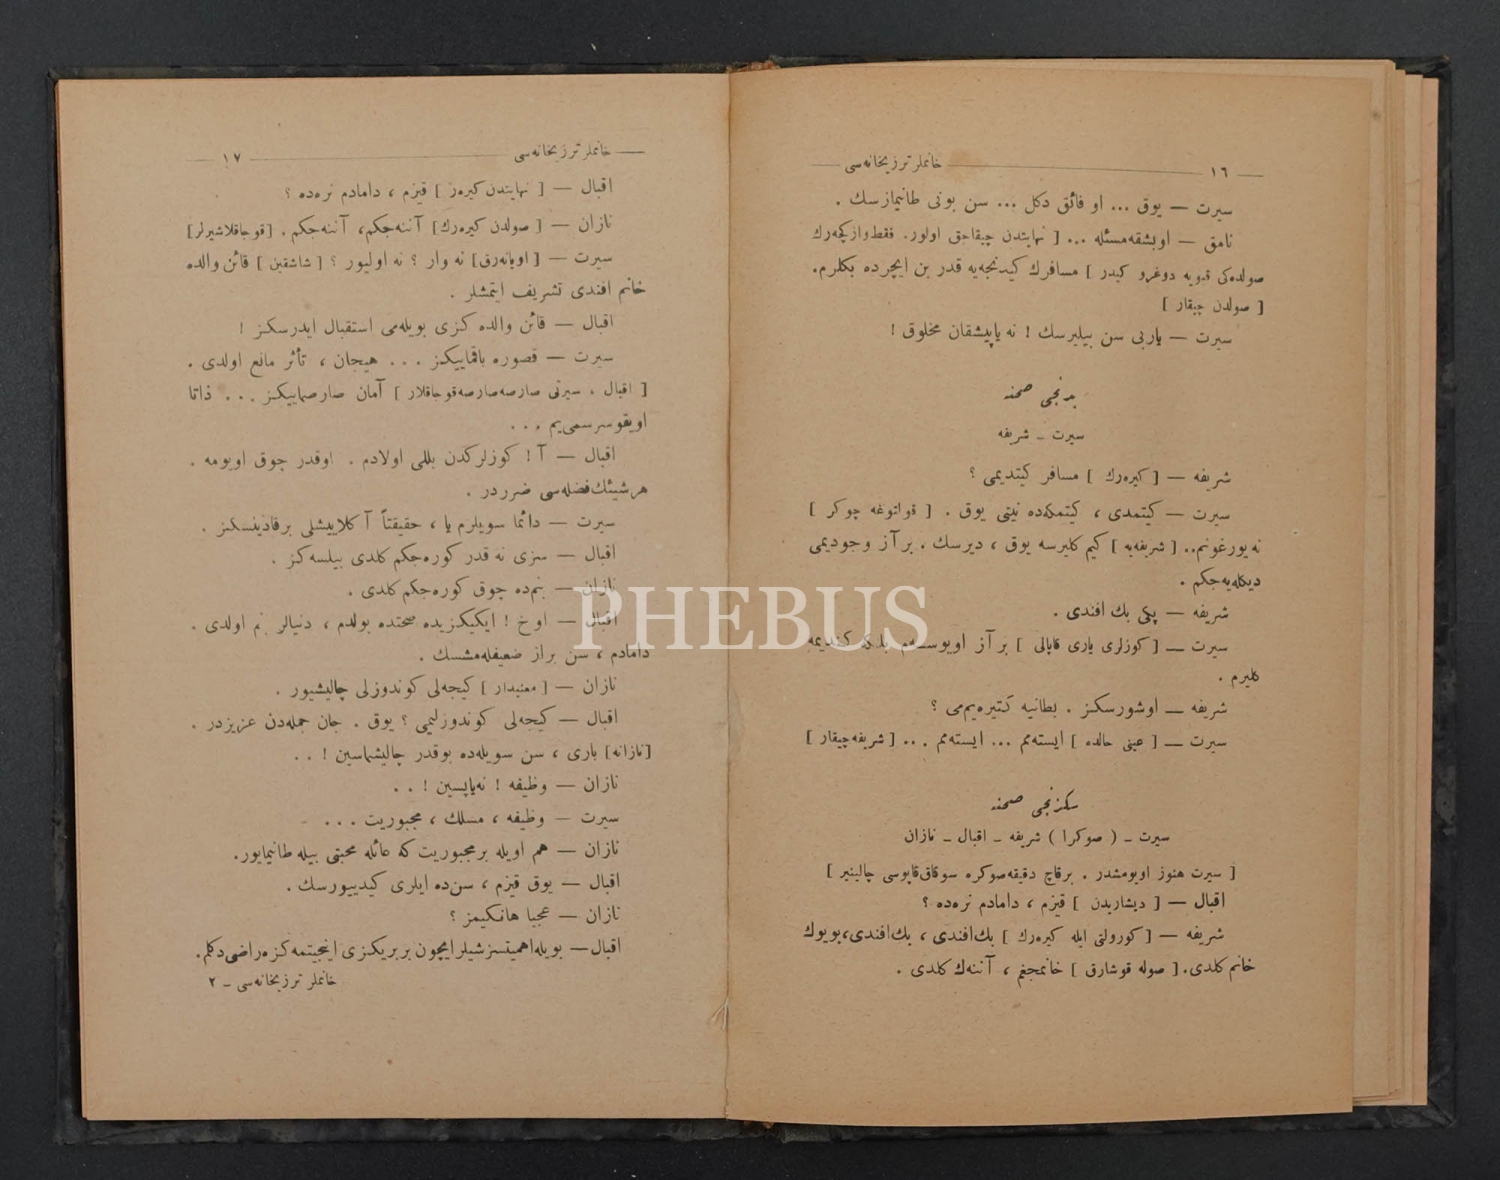 ١٦ خانملر ترزيخانه‌سى
سيرت — يوق ... او فائق دكل ... سن بونى طانيمازسك .
نامق — اوبشقه مسئله ... [ نهايتدن چيقاجق اولور. فقط وازكچه‌رك
صولده‌كى قپويه دوغرو كيدر ] مسافرك كيدنجه‌يه قدر بن ايچرده بكلرم.
[ صولدن چيقار ]
سيرت — ياربى سن بيليرسك ! نه ياپيشقان مخلوق !
يدنجى صحنه
سيرت ــ شريفه
شريفه — [ كيره‌رك ] مسافر كيتديمى ؟
سيرت — كيتمدى ، كيتمكه‌ده نيتى يوق . [ قولتوغه چوكر ]
نه يورغونم.. [ شريفه‌يه ] كيم كليرسه يوق ، ديرسك . بر آز وجوديمى
ديكله‌يه‌جكم .
شريفه — پكى بك افندى .
سيرت — [ كوزلرى يارى قاپالى ] بر آز اويوسه‌م بلكه كنديمه
كليرم .
شريفه — اوشورسكز . بطانيه كتيره‌يم‌مى ؟
سيرت — [ عينى حالده ] ايسته‌مم ... ايسته‌مم ... [ شريفه چيقار ]
سكزنجى صحنه
سيرت ــ ( صوكرا ) شريفه ــ اقبال ــ نازان
[ سيرت هنوز اويومشدر . برقاچ دقيقه صوكره سوقاق قاپوسى چالينير ]
اقبال — [ ديشاريدن ] قيزم ، دامادم نره‌ده ؟
شريفه — [ كورولتى ايله كيره‌رك ] بك افندى ، بك افندى، بويوك
خانم كلدى. [ صوله قوشارق ] خانمجغم ، آننه‌ك كلدى .
خانملر ترزيخانه‌سى ١٧
اقبال — [ نهايتدن كيره‌ر ] قيزم ، دامادم نره‌ده ؟
نازان — [ صولدن كيره‌رك] آننه‌جكم، آننه‌جكم . [قوجاقلاشيرلر]
سيرت — [ اويانه‌رق] نه وار ؟ نه اوليور ؟ [ شاشقين ] قائن والده
خانم افندى تشريف ايتمشلر .
اقبال — قائن والده كزى بويله‌مى استقبال ايدرسكز !
سيرت — قصوره باقماييكز ... هيجان ، تأثر مانع اولدى .
[ اقبال ، سيرتى صارصه صارصه قوجاقلار ] آمان صارصماييكز ... ذاتا
اويقو سرسمى‌يم ...
اقبال — آ ! كوزلركدن بللى اولادم . اوقدر چوق اويومه .
هرشيئك فضله‌سى ضرردر .
سيرت — دائما سويلرم يا ، حقيقتاً آكلاييشلى برقادينسكز .
اقبال — سزى نه قدر كوره‌جكم كلدى بيلسه‌كز .
نازان — بنم‌ده چوق كوره‌جكم كلدى .
اقبال — اوخ ! ايكيكزيده صحتده بولدم ، دنيالر بنم اولدى .
دامادم ، سن براز ضعيفله‌مشسك .
نازان — [ معنيدار ] كيجه‌لى كوندوزلى چاليشيور .
اقبال — كيجه‌لى كوندوزليمى ؟ يوق . جان جمله‌دن عزيزدر .
[نازانه] بارى ، سن سويله‌ده بوقدر چاليشماسين ! ..
نازان — وظيفه ! نه‌ياپسين ! ..
سيرت — وظيفه ، مسلك ، مجبوريت ...
نازان — هم اويله بر مجبوريت كه عائله محبتى بيله طانيمايور.
اقبال — يوق قيزم ، سن‌ده ايلرى كيدييورسك .
نازان — عجبا هانكيمز ؟
اقبال — بويله اهميتسز شيلر ايچون بربريكزى اينجيتمه كزه راضى دكلم.
خانملر ترزيخانه‌سى ــ ٢
PHEBUS